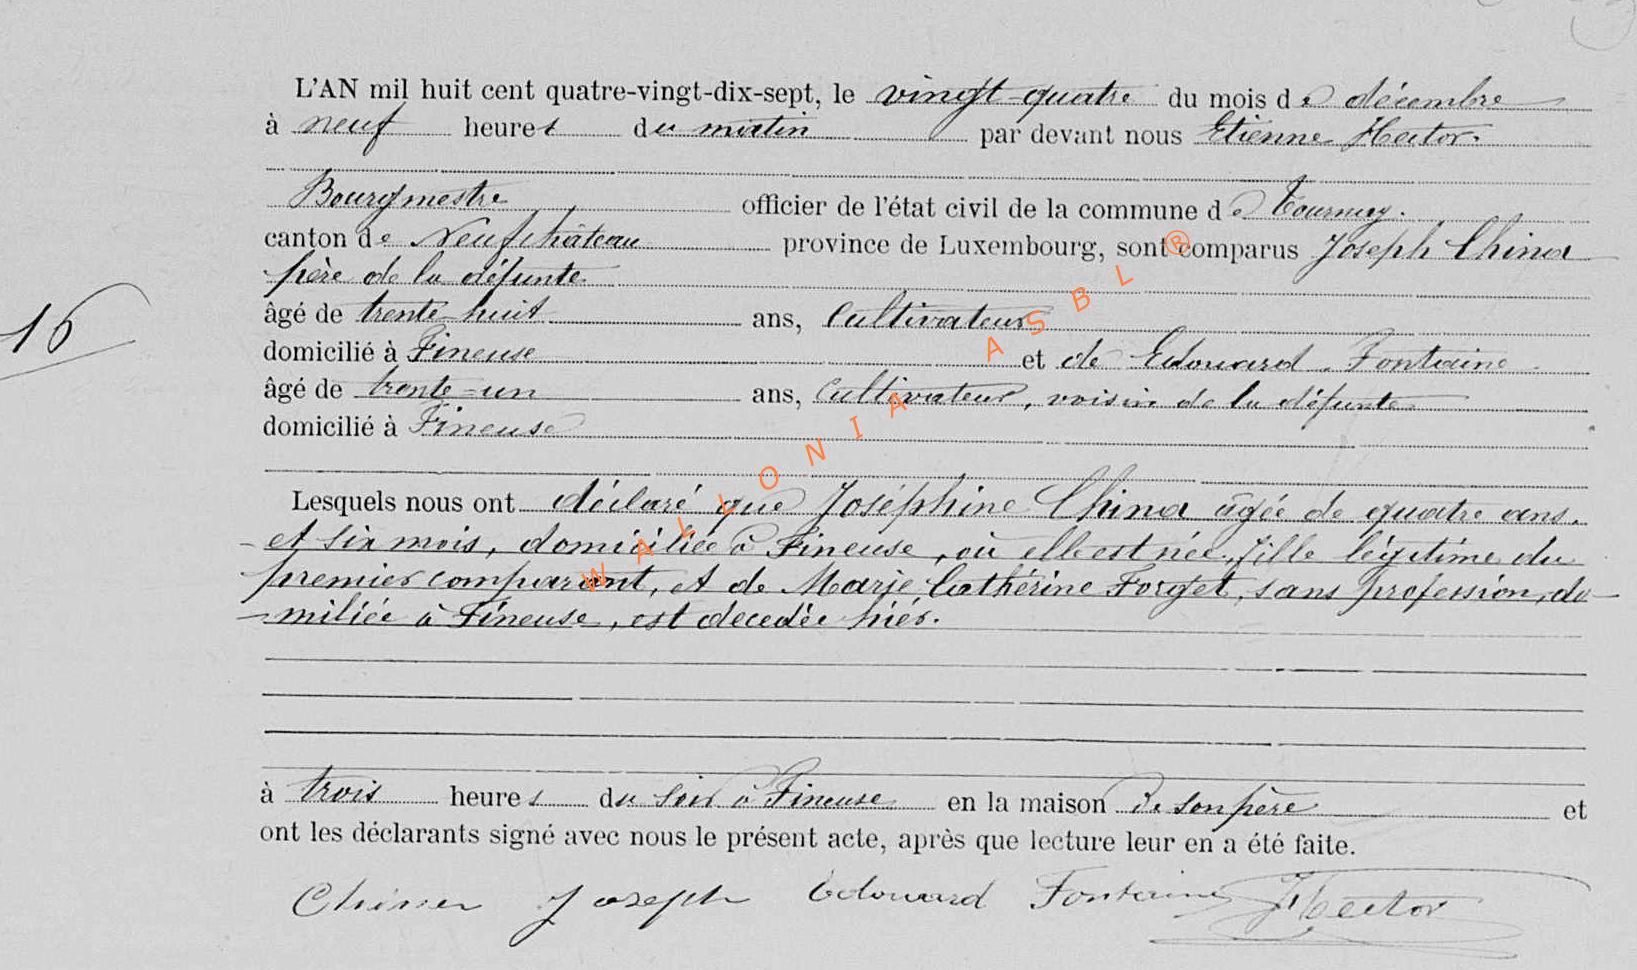 L'AN mil huit cent quatre-vingt-dix-sept, le vingt-quatre du mois de décembre
à neuf heures du matin par devant nous Etienne Hector.
Bourgmestre officier de l'état civil de la commune de Tournay.
canton de Neufchâteau province de Luxembourg, sont comparus Joseph China
père de la défunte
âgé de trente-huit ans, Cultivateur
domicilié à Fineuse et de Edouard Fontaine
âgé de trente-un ans, Cultivateur, voisin de la défunte
domicilié à Fineuse
16
Lesquels nous ont déclaré que Joséphine China âgée de quatre ans.
et six mois, domiciliée à Fineuse, où elle est née, fille légitime du
premier comparant, et de Marie Cathérine Forget, sans profession, do-
miliée à Fineuse, est decedée hier.
à trois heures du soir à Fineuse en la maison de son père et
ont les déclarants signé avec nous le présent acte, après que lecture leur en a été faite.
Joseph Edouard Fontaine Hector
WALLONIA ASBL ®